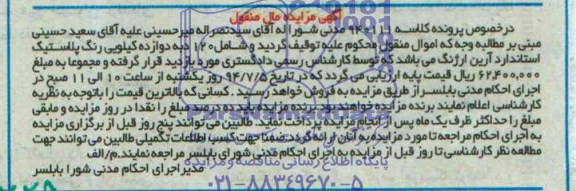 آگهی مزایده مال منقول
درخصوص پرونده کلاسه ۹۴۰۱۱۱ مدنی شورا له آقای سیدنصراله میرحسینی علیه آقای سعید حسینی
مبنی بر مطالبه وجه که اموال منقول محکوم علیه توقیف گردید و شامل ۱۲۰ دبه دوازده کیلویی رنگ پلاستیک
استاندارد آرین ارژنگ می باشد که توسط کارشناس رسمی دادگستری مورد بازدید قرار گرفته و مجموعا به مبلغ
۶۲,۴۰۰,۰۰۰ ریال قیمت پایه ارزیابی می گردد که در تاریخ ۹۴/۷/۵ روز یکشنبه از ساعت ۱۰ الی ۱۱ صبح در
اجرای احکام مدنی بابلسر از طریق مزایده به فروش خواهد رسید. کسانی که بالاترین قیمت را باتوجه به نظریه
کارشناسی اعلام نمایند برنده مزایده خواهند بود برنده مزایده بدهد ده درصد مبلغ را نقدا در روز مزایده و مابقی
مبلغ را حداکثر ظرف یک ماه پس از انجام مزایده پرداخت نماید. طالبین می توانند پنج روز قبل از برگزاری مزایده
به اجرای احکام مراجعه تا مورد مزایده به آنان ارائه گردد ضمنا جهت کسب اطلاعات تکمیلی طالبین می توانند جهت
مطالعه نظر کارشناسی تا روز قبل از مزایده به اجرای احکام مدنی شورای بابلسر مراجعه نمایند. م/الف
مدیر اجرای احکام مدنی شورا بابلسر
پایگاه اطلاع رسانی مناقصه و مزایده
۰۲۱-۸۸۳۴۹۶۷۰-۵